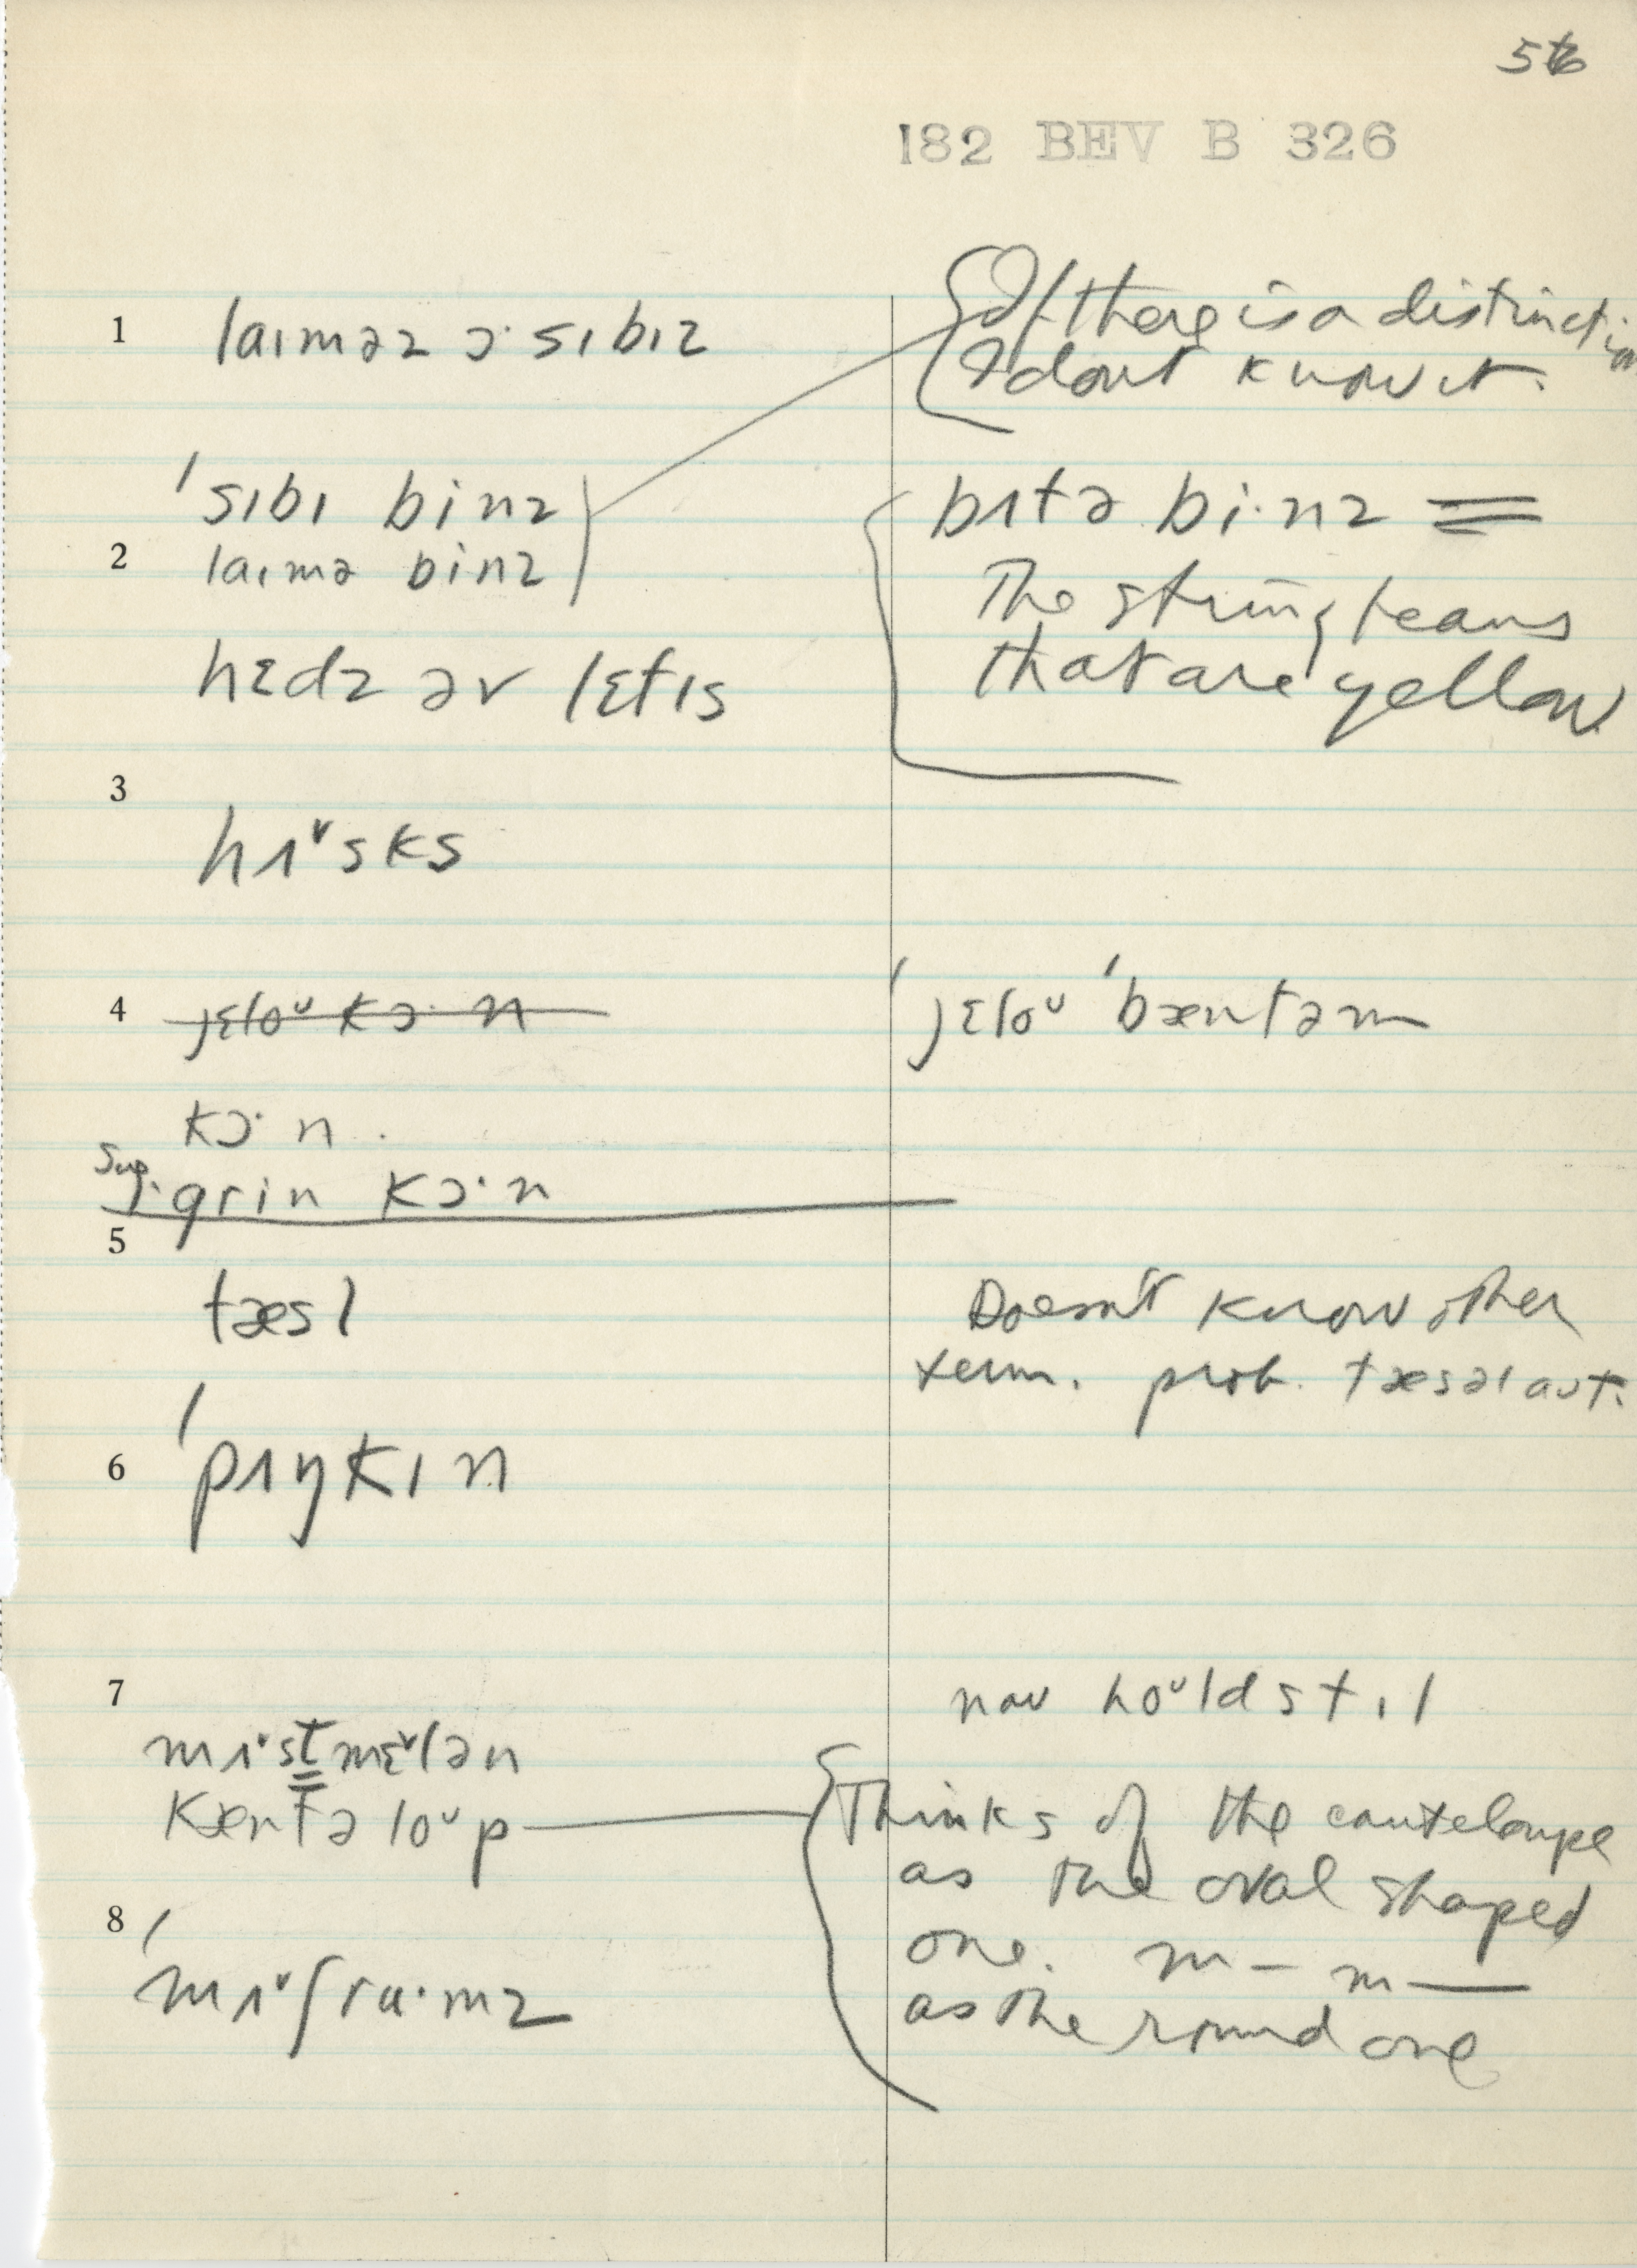 56
182 BEV B 326
1 laɪməz ɔ· sɪbɪz
If there is a distinction
I dont know it.
ˈsɪbɪ binz
2 laɪmə binz
bʌtə bi·nz =
The string beans
that are yellow
hɛdz əv lɛtɪs
3
hʌˇsks
4 jɛloᴜ kɔ· n
ˈjɛloᴜ ˈbæntəm
kɔ· n.
Sug. grin kɔ· n
5
tæsl
Doesn't know other
term. prob. tæsəl aut.
6 ˈpʌŋkɪn
7
naʊ hoᴜld stɪl
mʌˇst mɛˇlən
kæntəloᴜp
Thinks of the canteloupe
as the oval shaped
one. m – m —
as the round one
8
ˈmʌˇʃru·mz